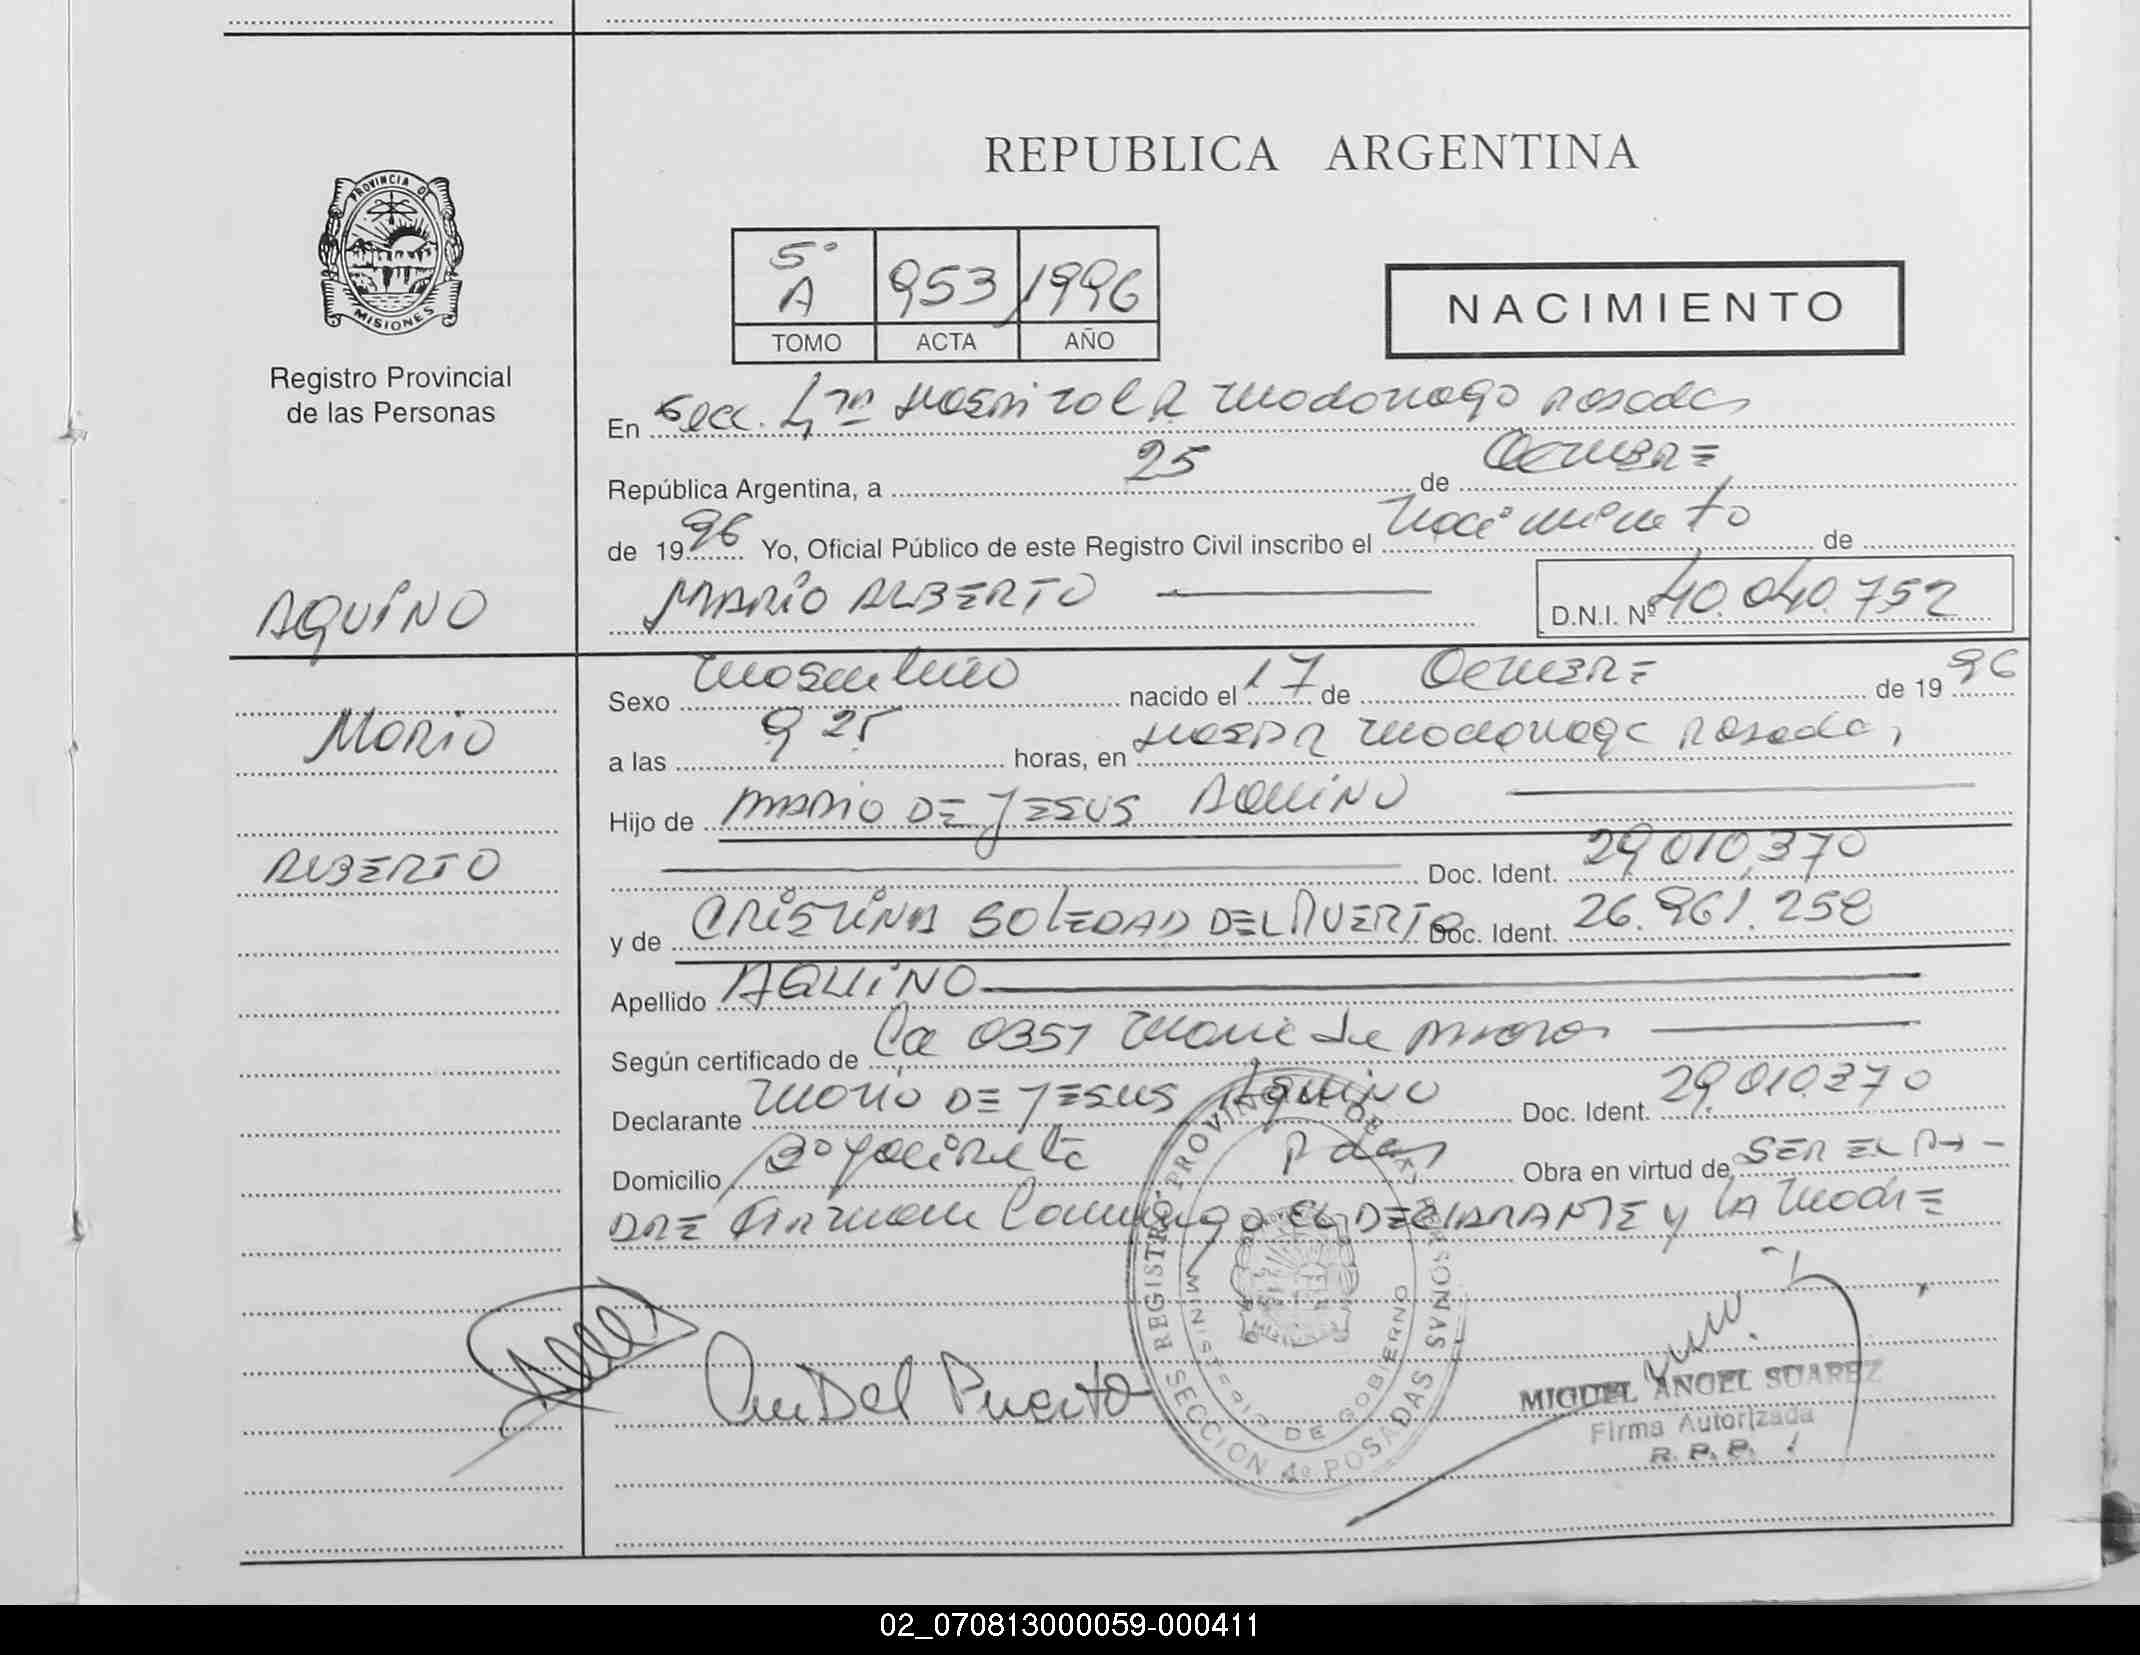 REPUBLICA ARGENTINA
PROVINCIA DE
MISIONES
Registro Provincial
de las Personas
5º A 953 1996
TOMO ACTA AÑO
NACIMIENTO
En Secc. 4ta Hospital R Madariaga Posadas
República Argentina, a 25 de Octubre
de 1996 Yo, Oficial Público de este Registro Civil inscribo el Nacimiento de
AQUINO
MARIO ALBERTO
D.N.I. Nº 40.040.752
Mario
ALBERTO
Sexo Masculino nacido el 17 de Octubre de 1996
a las 9 25 horas, en Hosp R Madariaga Posadas
Hijo de MARIO DE JESUS AQUINO
Doc. Ident. 29.010.370
y de CRISTINA SOLEDAD DEL PUERTO Doc. Ident. 26.961.258
Apellido AQUINO
Según certificado de
Declarante Mario DE JESUS Aquino Doc. Ident. 29.010.370
Domicilio Bº Yacireta Pdas Obra en virtud de SER EL PA-
DRE Firman Conmigo EL DECLARANTE y LA Madre
REGISTRO PROVINCIAL DE LAS PERSONAS
MINISTERIO DE GOBIERNO
SECCION 4º POSADAS
Del Puerto
MIGUEL ANGEL SUAREZ
Firma Autorizada
R. P. P.
02_070813000059-000411